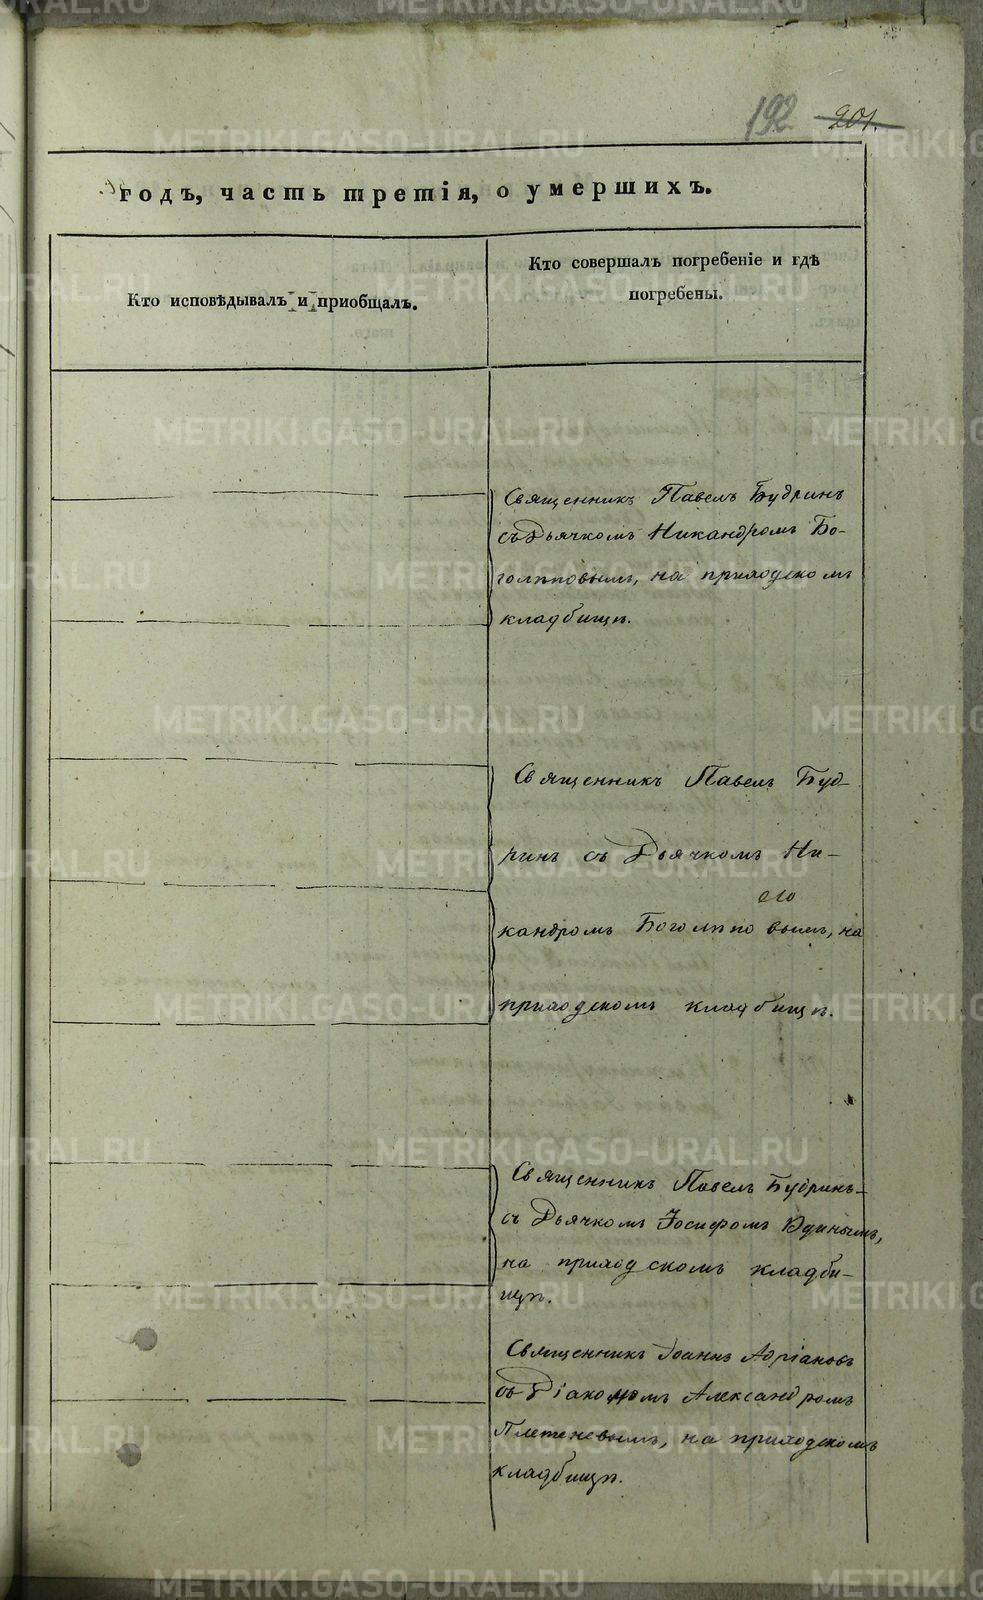 192 201.
годъ, часть третія, о умершихъ.
Кто исповѣдывалъ и приобщалъ.
Кто совершалъ погребеніе и гдѣ
погребены.
Священникъ Павелъ Будринъ
съ Дьячкомъ Никандромъ Бо-
голѣповымъ, на приходскомъ
кладбищѣ.
Священникъ Павелъ Буд-
ринъ съ Дьячкомъ Ни-
его
кандромъ Боголѣповымъ, на
приходскомъ кладбищѣ.
Священникъ Павелъ Будринъ
съ Дьячкомъ Іосифомъ Юдинымъ,
на приходскомъ кладби-
щѣ.
Священникъ Іоаннъ Адріановъ
съ Діакономъ Александромъ
Плетеневымъ, на приходскомъ
кладбищѣ.
METRIKI.GASO-URAL.RU